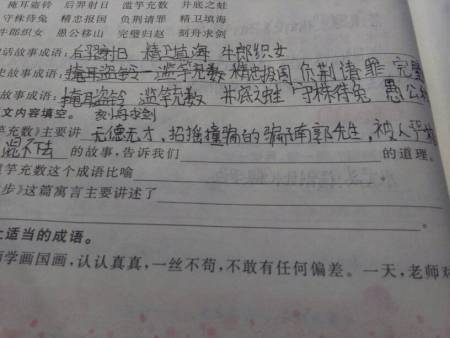 掩耳盗铃 后羿射日 滥竽充数 井底之蛙
守株待兔 精忠报国 负荆请罪 精卫填海
牛郎织女 愚公移山 完璧归赵 刻舟求剑
话故事成语：后羿射日 精卫填海 牛郎织女
史故事成语：掩耳盗铃 滥竽充数 精忠报国 负荆请罪 完璧
故事成语：掩耳盗铃 滥竽充数 井底之蛙 守株待兔 愚公移
文内容填空。 刻舟求剑
竽充数》主要讲 无德无才，招摇撞骗的骗子南郭先生，被人
混不下去 的故事，告诉我们 的道理。
竽充数这个成语比喻
步》这篇寓言主要讲述了
。
上适当的成语。
学画国画，认认真真，一丝不苟，不敢有任何偏差。一天，老师对